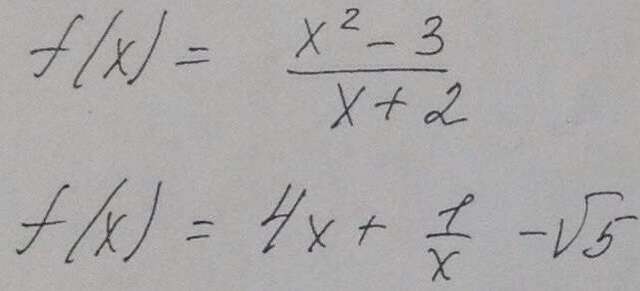 f(x) = \frac{x^2 - 3}{x + 2}
f(x) = 4x + \frac{1}{x} - \sqrt{5}